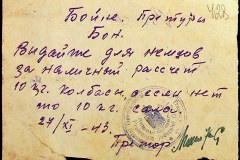 428
Бойне. Претури
Бон.
Видайте для немцов
за наличный рассчет
10 кг. колбаси, а если нет
то 10 кг. сала.
27/XI -43.
Претор